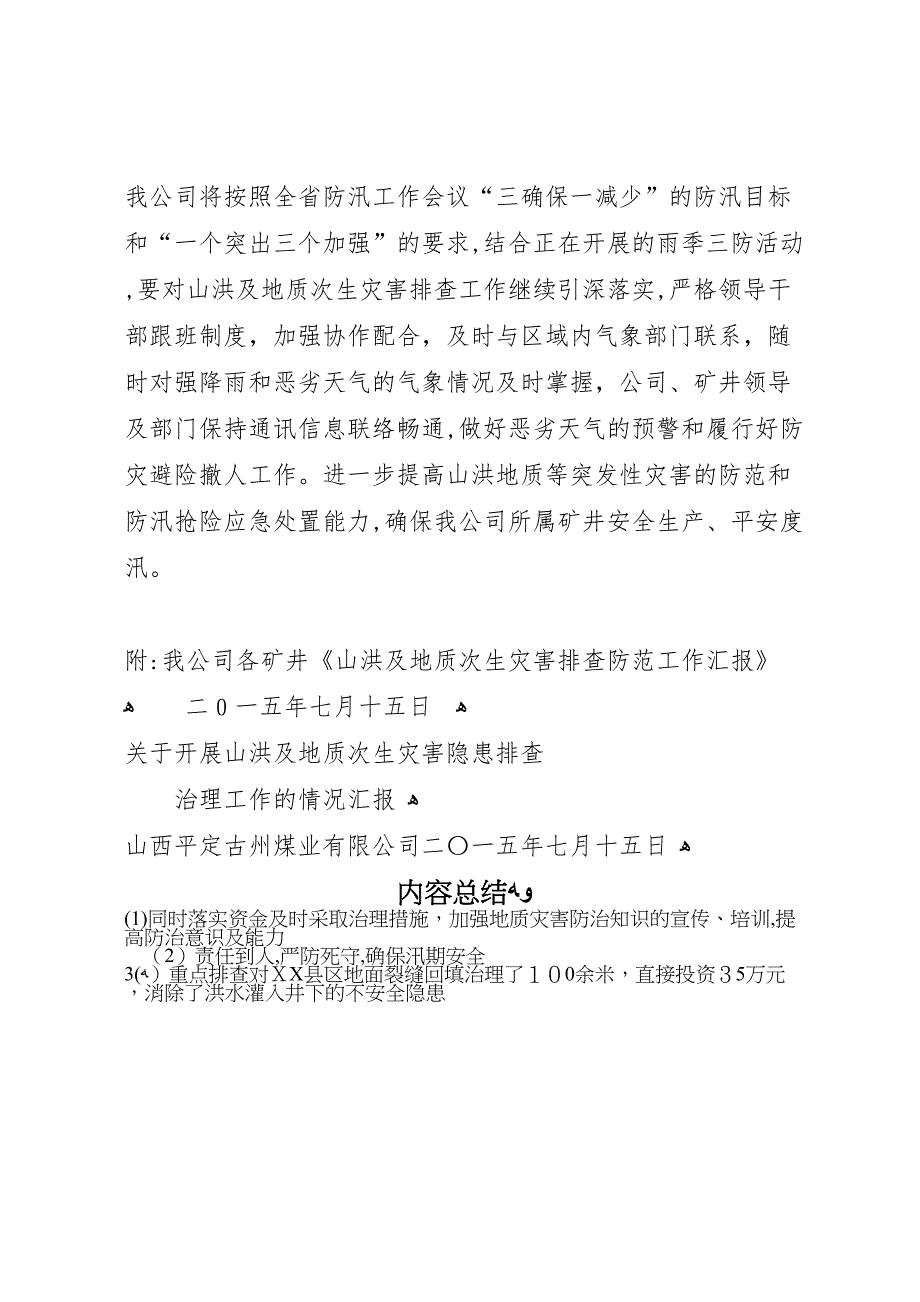 我公司将按照全省防汛工作会议“三确保一减少”的防汛目标
和“一个突出三个加强”的要求,结合正在开展的雨季三防活动
,要对山洪及地质次生灾害排查工作继续引深落实,严格领导干
部跟班制度，加强协作配合，及时与区域内气象部门联系，随
时对强降雨和恶劣天气的气象情况及时掌握，公司、矿井领导
及部门保持通讯信息联络畅通,做好恶劣天气的预警和履行好防
灾避险撤人工作。进一步提高山洪地质等突发性灾害的防范和
防汛抢险应急处置能力,确保我公司所属矿井安全生产、平安度
汛。
附:我公司各矿井《山洪及地质次生灾害排查防范工作汇报》
ﻫ 二０一五年七月十五日 ﻫ
关于开展山洪及地质次生灾害隐患排查
治理工作的情况汇报 ﻫ
山西平定古州煤业有限公司二〇一五年七月十五日 ﻫ
内容总结ﻭﻪ
(1)同时落实资金及时采取治理措施，加强地质灾害防治知识的宣传、培训,提
高防治意识及能力
（2）责任到人,严防死守,确保汛期安全
3(ﻪ）重点排查对ＸX县区地面裂缝回填治理了１０0余米，直接投资３5万元
，消除了洪水灌入井下的不安全隐患